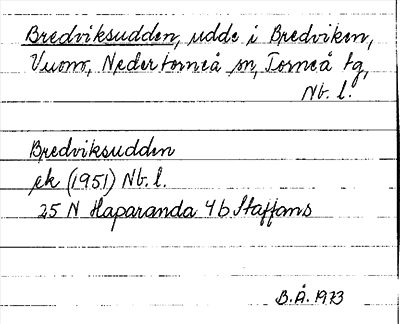 Bredviksudden, udde i Bredviken,
Vuono, Nedertorneå sn, Torneå tg,
Nb. l.
Bredviksudden
ek (1951) Nb. l.
25 N Haparanda 4b Staffans
B.Å. 1973